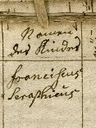 Namen
des Kindes
Franciscus
Seraphicus